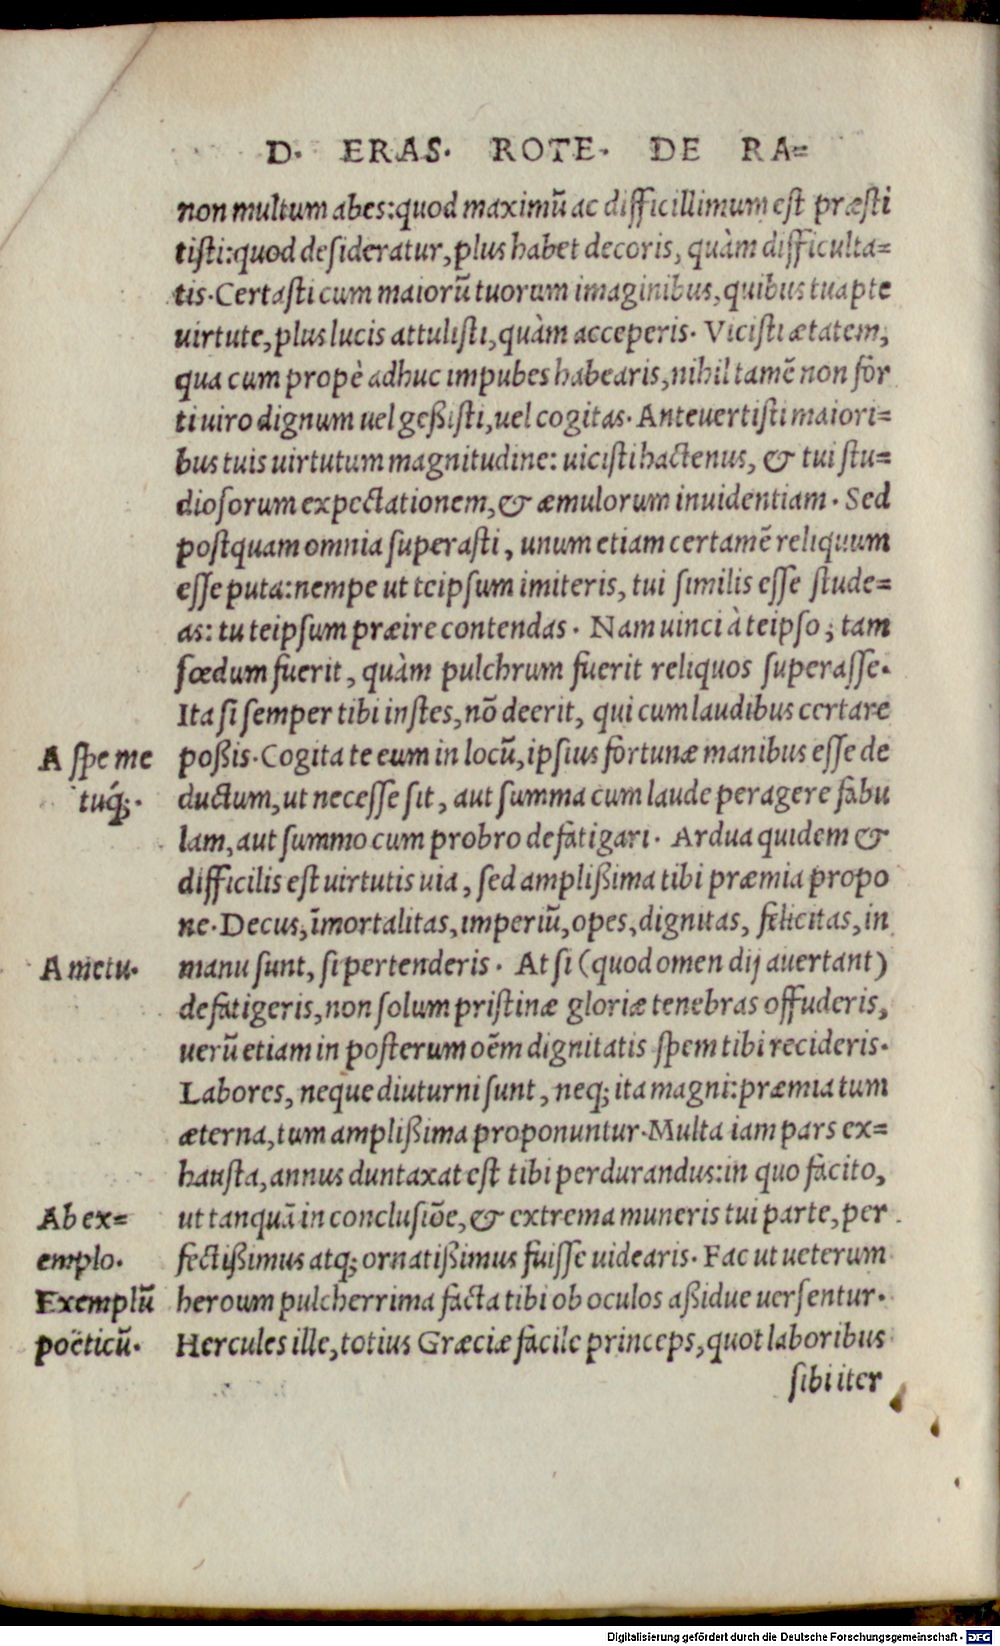 D. ERAS. ROTE. DE RA=
non multum abes: quod maximũ ac difficillimum est præsti
tisti: quod desideratur, plus habet decoris, quàm difficulta=
tis. Certasti cum maiorũ tuorum imaginibus, quibus tuapte
uirtute, plus lucis attulisti, quàm acceperis. Vicisti ætatem,
qua cum propè adhuc impubes habearis, nihil tamẽ non for
ti uiro dignum uel geßisti, uel cogitas. Anteuertisti maiori=
bus tuis uirtutum magnitudine: uicisti hactenus, & tui stu=
diosorum expectationem, & æmulorum inuidentiam. Sed
postquam omnia superasti, unum etiam certamẽ reliquum
esse puta: nempe ut teipsum imiteris, tui similis esse stude=
as: tu teipsum præire contendas. Nam uinci à teipso, tam
fœdum fuerit, quàm pulchrum fuerit reliquos superasse.
Ita si semper tibi instes, nõ deerit, qui cum laudibus certare
A spe me poßis. Cogita te eum in locũ, ipsius fortunæ manibus esse de
tuq́;. ductum, ut necesse sit, aut summa cum laude peragere fabu
lam, aut summo cum probro defatigari. Ardua quidem &
difficilis est uirtutis uia, sed amplißima tibi præmia propo
ne. Decus, ĩmortalitas, imperiũ, opes, dignitas, felicitas, in
A metu. manu sunt, si pertenderis. At si (quod omen dij auertant)
defatigeris, non solum pristinæ gloriæ tenebras offuderis,
uerũ etiam in posterum oẽm dignitatis spem tibi recideris.
Labores, neque diuturni sunt, neq; ita magni: præmia tum
æterna, tum amplißima proponuntur. Multa iam pars ex=
hausta, annus duntaxat est tibi perdurandus: in quo facito,
Ab ex= ut tanquã in conclusiõe, & extrema muneris tui parte, per
emplo. fectißimus atq; ornatißimus fuisse uidearis. Fac ut ueterum
Exemplũ heroum pulcherrima facta tibi ob oculos aßidue uersentur.
poëticũ. Hercules ille, totius Græciæ facile princeps, quot laboribus
sibi iter
Digitalisierung gefördert durch die Deutsche Forschungsgemeinschaft - DFG